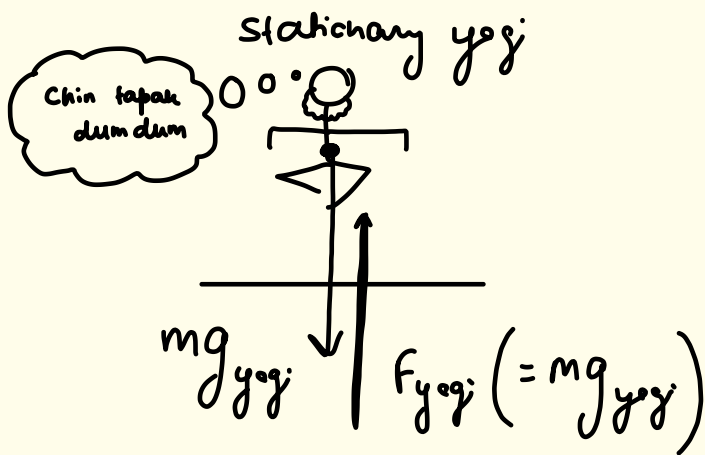 Stationary yogi
Chin tapak
dum dum
mg yogi
F yogi (= mg yogi)